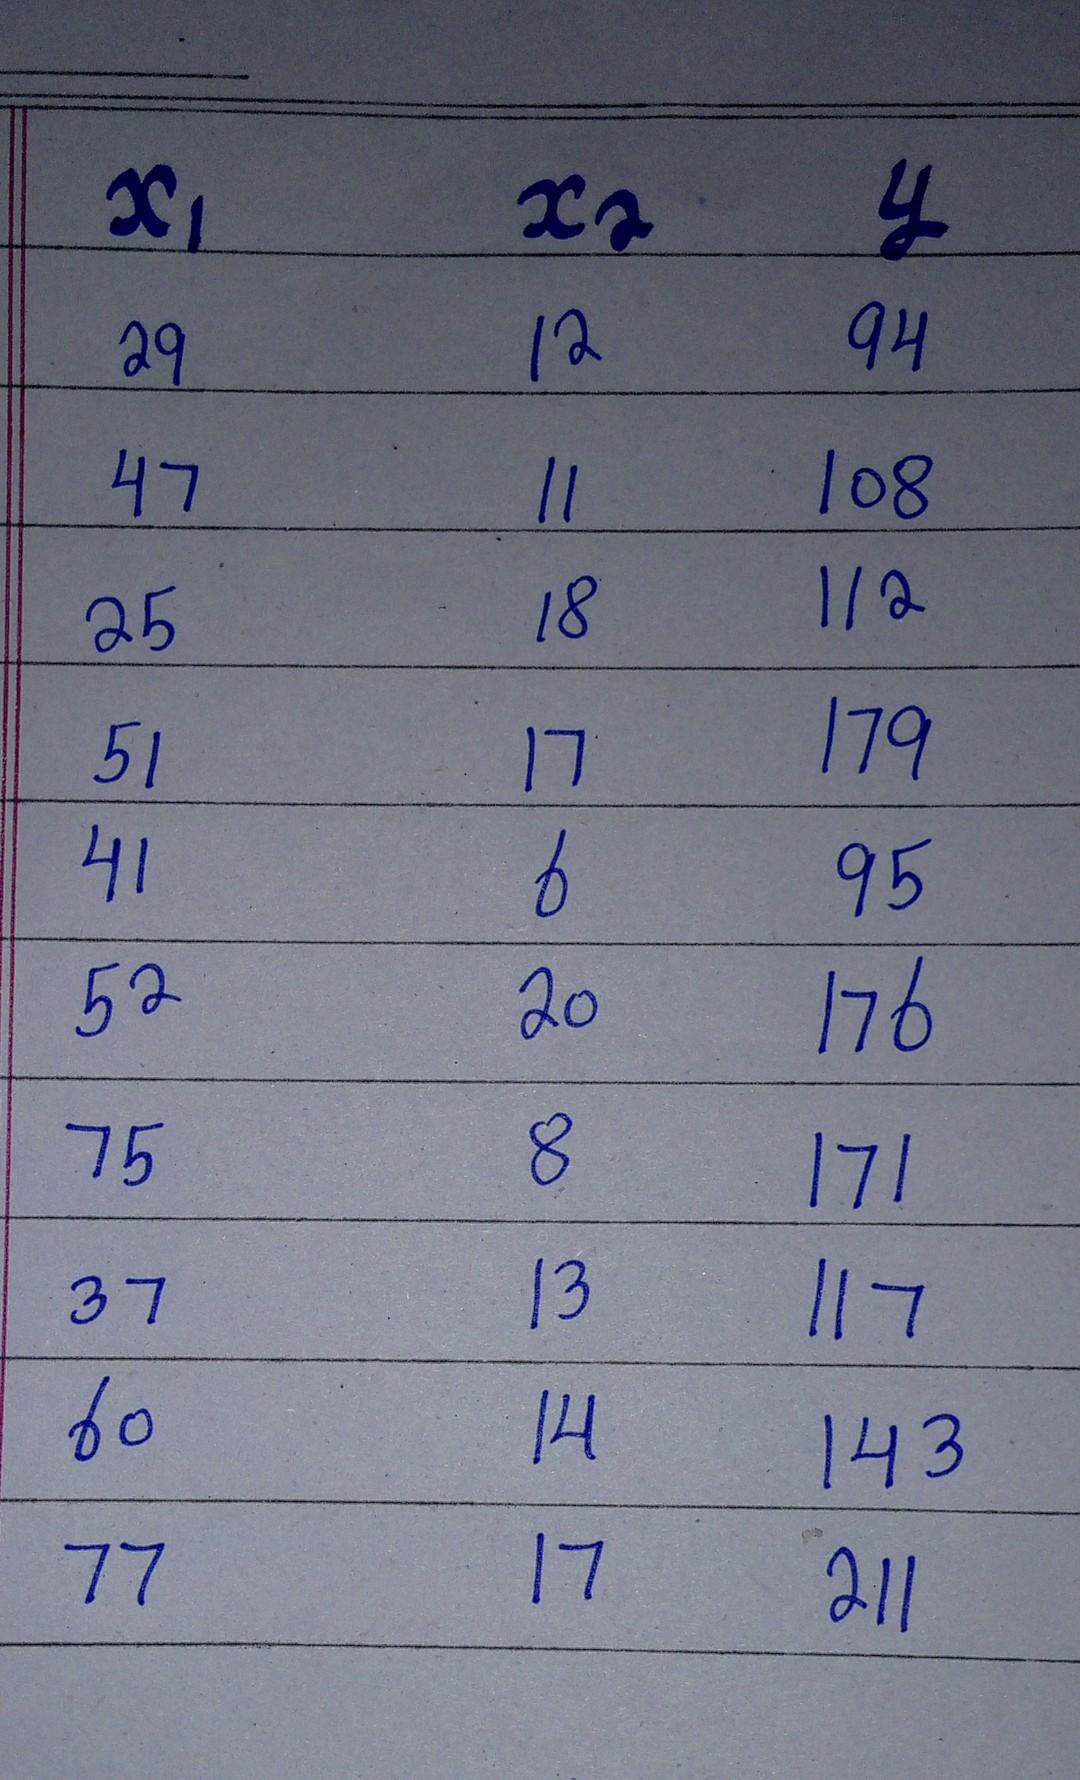 x₁ x₂ y
29 12 94
47 11 108
25 18 112
51 17 179
41 6 95
52 20 176
75 8 171
37 13 117
60 14 143
77 17 211